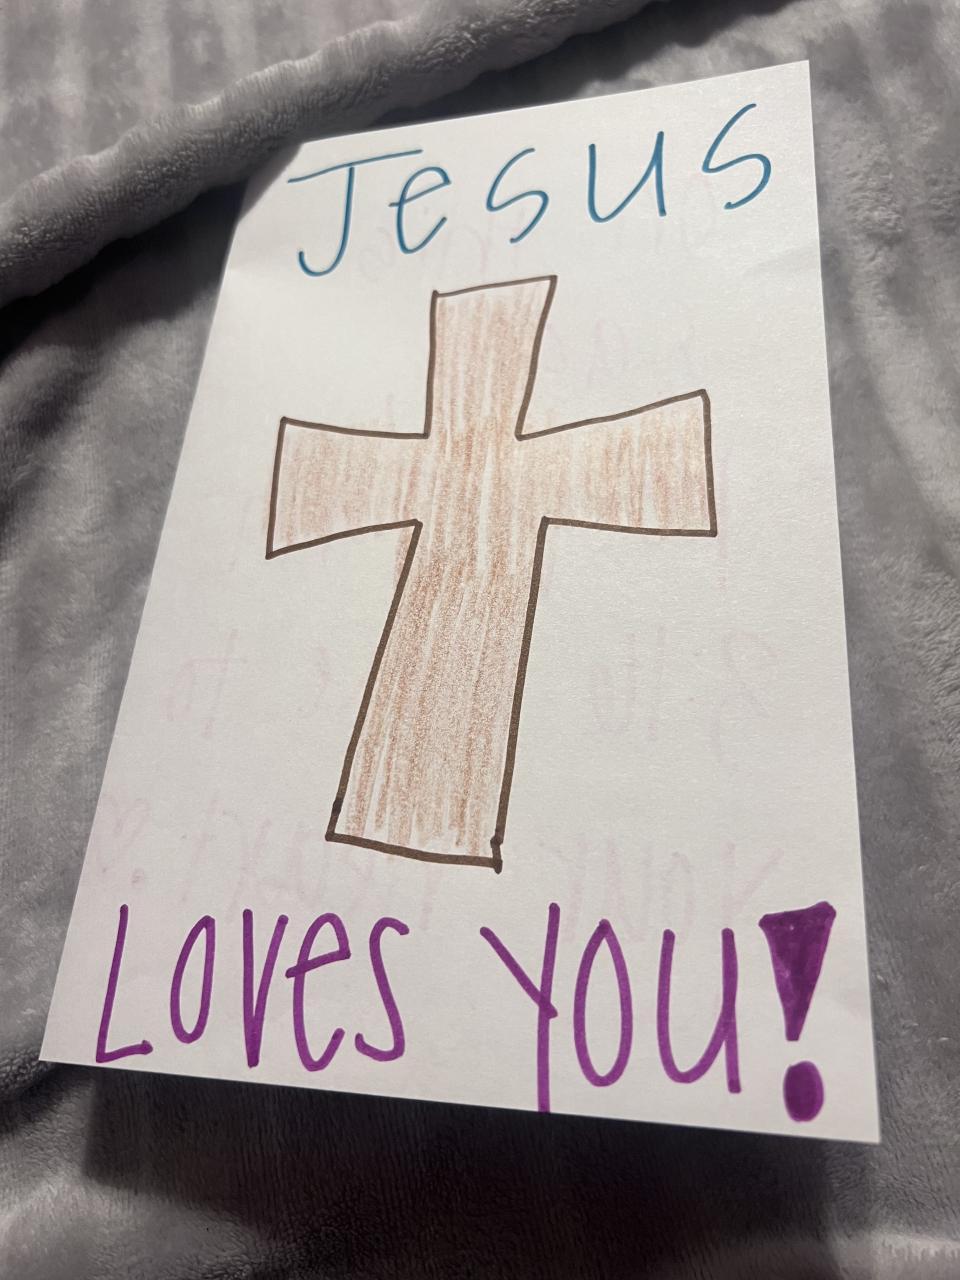 Jesus
Loves you!